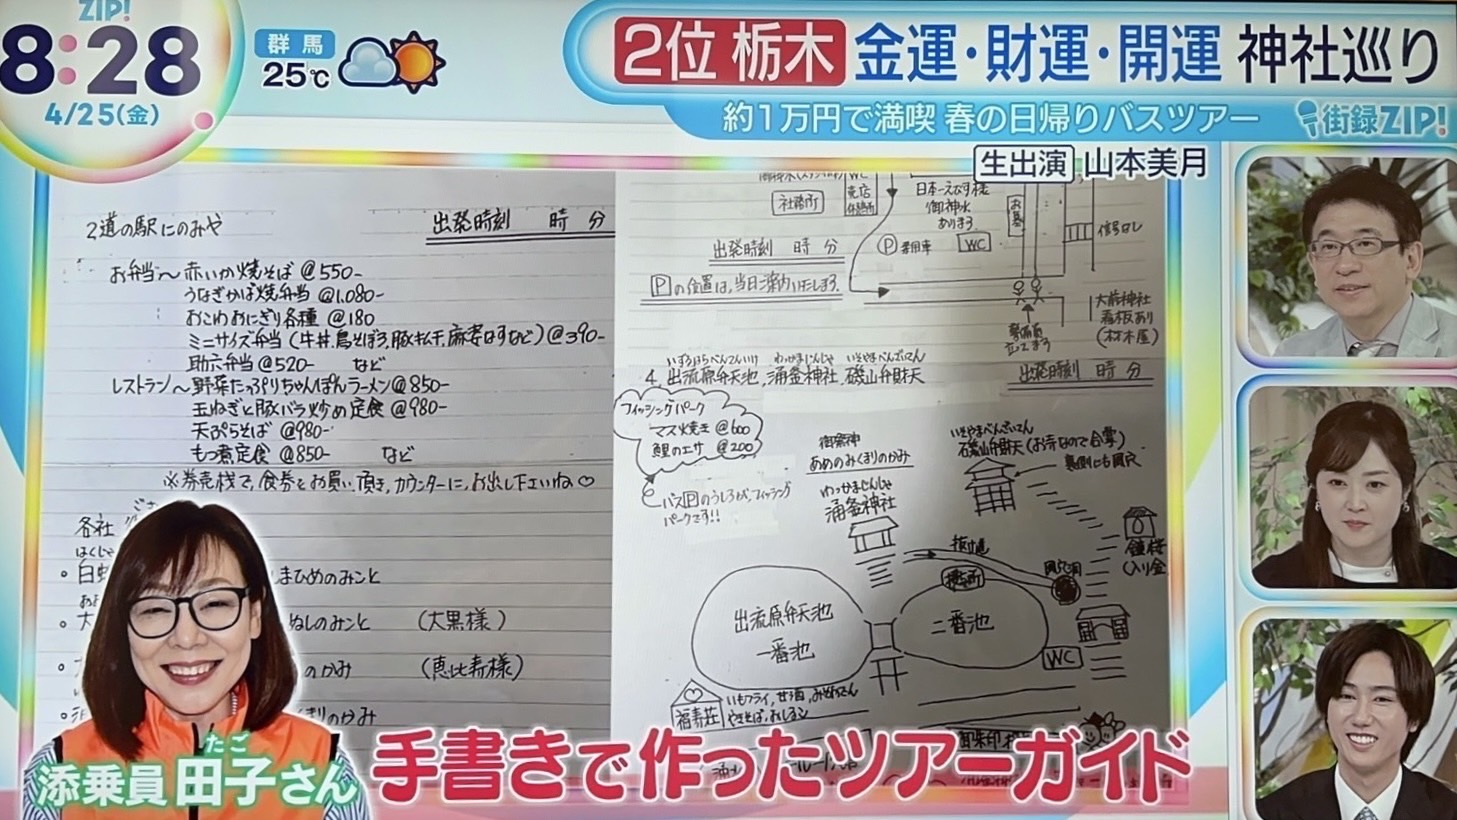 ZIP!
8:28
4/25(金)
群馬
25℃
2位 栃木 金運・財運・開運 神社巡り
約1万円で満喫 春の日帰りバスツアー
街録ZIP!
生出演 山本美月
2道の駅にのみや
出発時刻 時 分
お弁当〜赤いか焼そば @550-
うなぎかば焼弁当 @1,080-
おこわおにぎり各種 @180
ミニサイズ弁当(牛丼、鳥そぼろ、豚キムチ、麻婆なすなど)@390-
助六弁当@520- など
レストラン〜野菜たっぷりちゃんぽんラーメン@850-
玉ねぎと豚バラ炒め定食 @980-
天ぷらそば @980-
もつ煮定食 @850- など
※券売機で、食券をお買い頂き、カウンターに、お出し下さいね♡
各社
まひめのみこと
ぬしのみこと (大黒様)
のかみ (恵比寿様)
社務所
WC
売店
休憩所
日本一えびす様
御神水
あります
お墓
信号なし
出発時刻 時 分
P 乗用車
WC
Pの位置は、当日ご案内いたします。
大前神社
看板あり
(材木屋)
警備員
立てます
いずるはらべんてんいけ わっかまじんじゃ いそやまべんざいてん
4. 出流原弁天池、涌釜神社、磯山弁財天
出発時刻 時 分
フィッシングパーク
マス焼き @600
鯉のエサ @200
バスPのうしろが、フィッシング
パークです!!
御祭神
あめのみくまりのかみ
わっかまじんじゃ
涌釜神社
いそやまべんざいてん
磯山弁財天(お寺なので合掌)
裏側にも風穴
抜け道
出流原弁天池
一番池
二番池
WC
福寿荘
いもフライ、甘酒、みそおでん
やきそば、おしるこ
たご
添乗員 田子さん
手書きで作ったツアーガイド